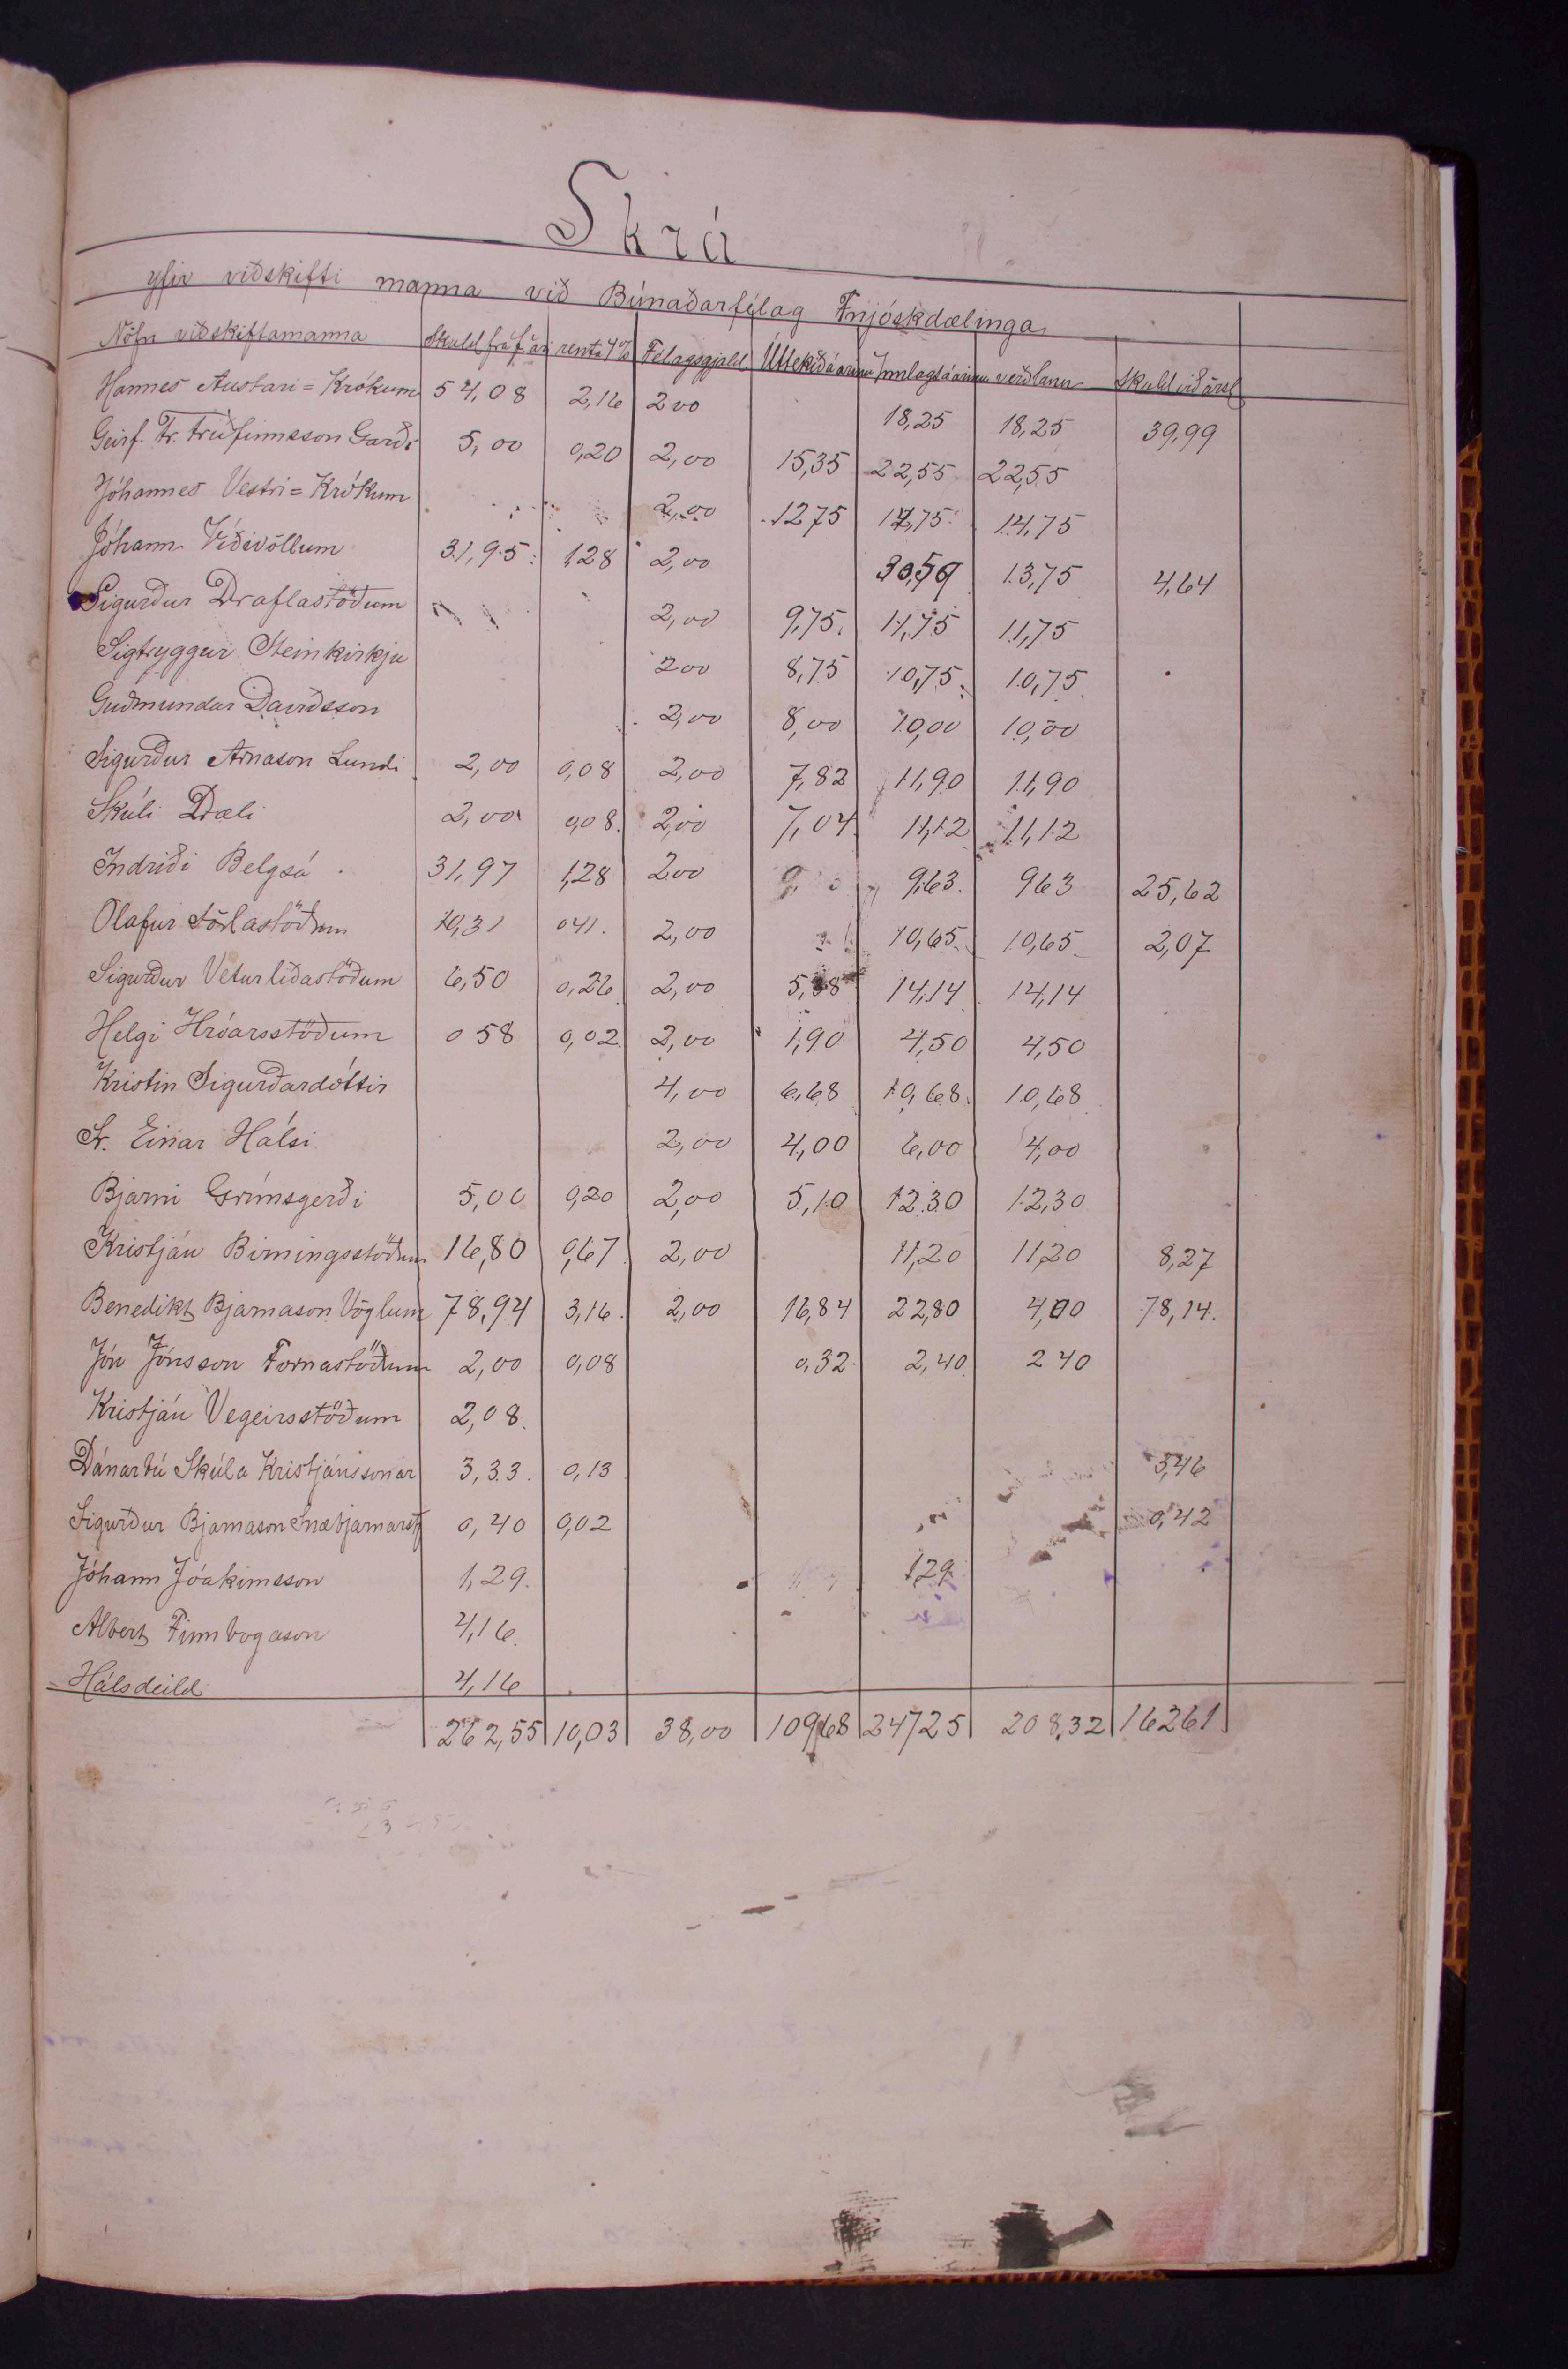 Skrá
yfir viðskifti manna við Búnaðarfélag Fnjóskdælinga
Nöfn viðskiftamanna Skuld frá f. ári renta 4% Félagsgjald Úttekið á árinu Innlagt á árinu verðlaun Skuld við ársl
Hannes Austari=Krókum 54,08 2,16 2 00 18,25 18,25 39,99
Geirf. Tr. Friðfinnsson Garði 5,00 0,20 2,00 15,35 22,55 22,55
Jóhannes Vestri=Krókum 2,00 12 75 14,75 14,75
Jóhann Víðivöllum 31,95 1,28 2,00 30,59 13,75 4,64
Sigurður Draflastöðum 2,00 9,75 11,75 11,75
Sigtryggur Steinkirkju 2 00 8,75 10,75 10,75
Guðmundur Davíðsson 2,00 8,00 10,00 10,00
Sigurður Arnason Lundi 2,00 0,08 2,00 7,82 11,90 11,90
Skúli Dæli 2,00 0,08 2,00 7,04 11,12 11,12
Indriði Belgsá 31,97 1,28 2 00 9,63 9 63 25,62
Olafur Sörlastöðum 10,31 0 41 2,00 10,65 10,65 2,07
Sigurður Veturliðastöðum 6,50 0,26 2,00 5,38 14,14 14,14
Helgi Hróarsstöðum 0 58 0,02 2,00 1,90 4,50 4,50
Kristín Sigurðardóttir 4,00 6,68 10,68 10,68
Sr. Einar Hálsi 2,00 4,00 6,00 4,00
Bjarni Grímsgerði 5,00 0,20 2,00 5,10 12 30 12,30
Kristján Birningsstöðum 16,80 0,67 2,00 11,20 11,20 8,27
Benedikt Bjarnason Vöglum 78,94 3,16 2,00 16,84 22,80 4,00 78,14
Jón Jónsson Fornastöðum 2,00 0,08 0,32 2,40 2 40
Kristján Vegeirsstöðum 2,08
Dánarbú Skúla Kristjánssonar 3,33 0,13 3,46
Sigurður Bjarnason Snæbjarnarst 0,40 0,02 0,42
Jóhann Jóakimsson 1,29 1,29
Albert Finnbogason 4,16
Hálsdeild 4,16
262,55 10,03 38,00 109,68 247,25 208,32 162 61